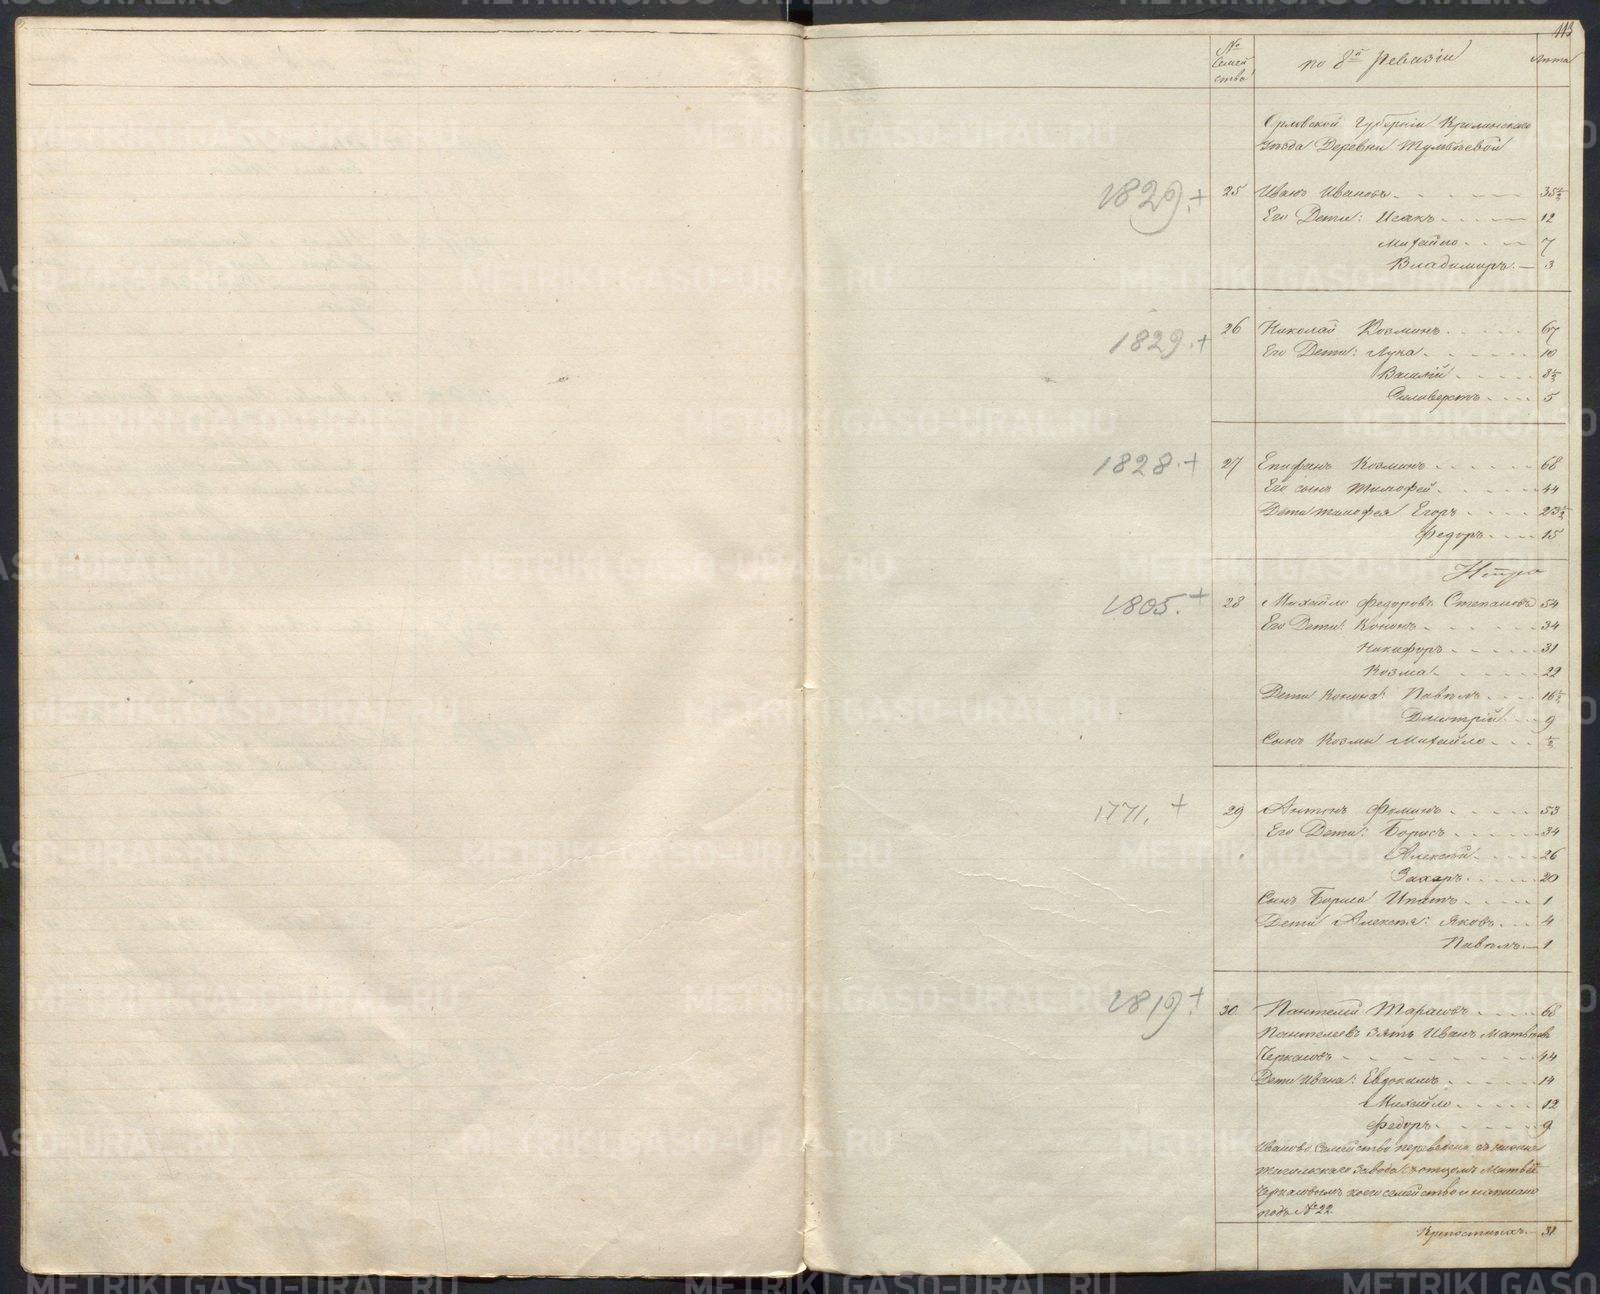 113
№ Семейства
по 8й Ревизіи
Лѣта
Орловской Губерніи Кромскаго
Уѣзда Деревни
1829.+ 25 Иванъ Ивановъ 35½
Его Дети: Исакъ 12
Михайло 7
Владимиръ 3
1829.+ 26 Николай Козминъ 67
Его Дети: Лука 10
Василій 8½
Силиверстъ 5
1828.+ 27 Епифанъ Козминъ 68
Его сынъ Тимофей 44
Дети Тимофея Егоръ 23½
Федоръ 15
1805.+ 28 Михайло Федоровъ Степановъ 54
Его Дети: Кононъ 34
Никифоръ 31
Козма 22
Дети Конона: Павелъ 16½
Дмитрій 9
Сынъ Козмы Михайло ½
1771.+ 29 Антонъ Фоминъ 53
Его Дети: Борисъ 34
Алексѣй 26
Захаръ 20
Сынъ Бориса Ипатъ 1
Дети Алексѣя: Яковъ 4
Павелъ 1
1819+ 30 Пантелей Тарасовъ 68
Пантелеевъ Зять Иванъ Матвѣевъ
Черкасовъ 44
Дети Ивана: Евдокимъ 14
Михайло 12
Федоръ 9
Иваново Семейство переведено съ Нижне
Тагильскаго завода съ отцомъ Матвѣемъ
Черкасовымъ коего семейство и написано
подъ № 22.
Крепостныхъ 31
METRIKI.GASO-URAL.RU